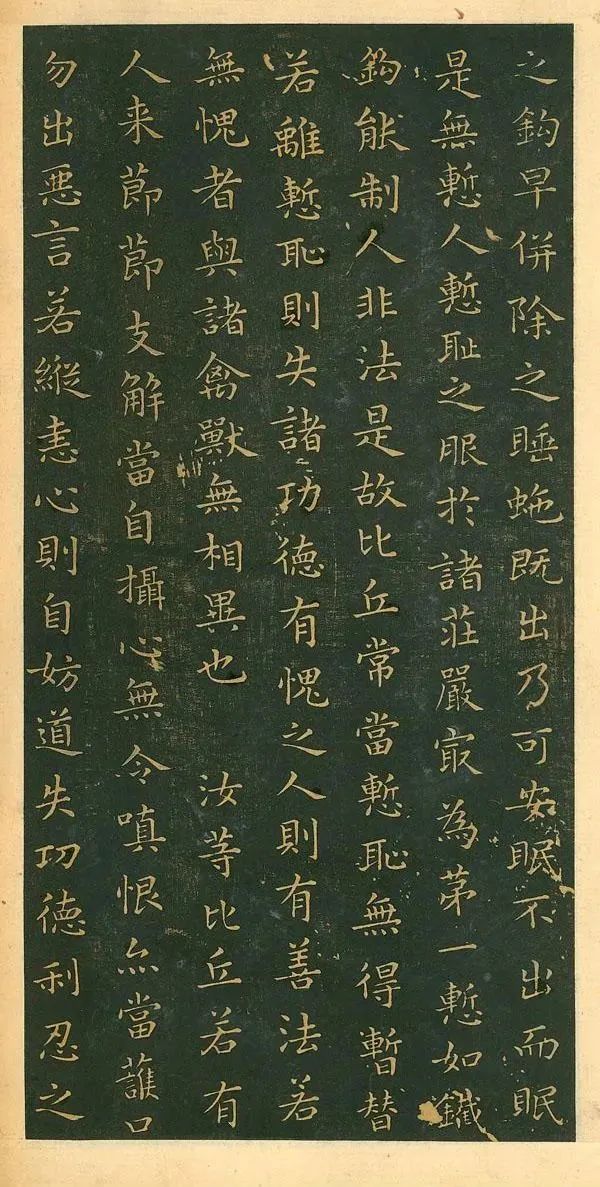 之鈎早併除之睡虵既出乃可安眠不出而眠
是無慙人慙耻之服於諸莊嚴冣為苐一慙如鐵
鈎能制人非法是故比丘常當慙恥無得暫替
若離慙恥則失諸功德有愧之人則有善法若
無愧者與諸禽獸無相異也　汝等比丘若有
人来節節支解當自攝心無令嗔恨亦當護口
勿出惡言若縱恚心則自妨道失功德利忍之